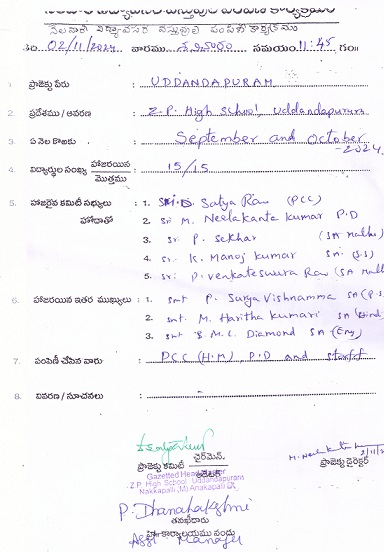 నెలవారీ విద్యావసర వస్తువుల పంపిణీ కార్యక్రమము
తేది 02/11/2024 వారము శనివారం సమయం 11:45 గం॥
1. ప్రాజెక్టు పేరు : UDDANDAPURAM
2. ప్రదేశము / ఆవరణ : Z.P. High School, Uddandapuram
3. ఏ నెల కొఱకు : September and October - 2024
4. విద్యార్థుల సంఖ్య హాజరయిన / మొత్తము : 15/15
5. హాజరైన కమిటీ సభ్యులు హోదాతో : 1. Satya Rao (PCC)
2. Sri M. Neelakanta Kumar P.D
3. Sri P. Sekhar (SA Maths)
4. Sri K. Manoj Kumar SA (S.S)
5. Sri P. Venkateswara Rao (SA Maths
6. హాజరయిన ఇతర ముఖ్యులు : 1. Smt P. Surya Vishnamma SA (P.S
2. Smt. M. Haritha Kumari SA (Hind
3. Smt B.M.L. Diamond SA (Eng)
7. పంపిణీ చేసిన వారు : PCC (H.M), P.D and staff
8. వివరణ / సూచనలు :
ప్రాజెక్టు కమిటీ ఛైర్మెన్
ప్రాజెక్టు డైరెక్టర్
Gazetted Headmaster
Z.P. High School, Uddandapuram
Nakkapalli (M) Anakapalli Dt.
P. Dhanalakshmi
తనఖీదారు
Asst Manager